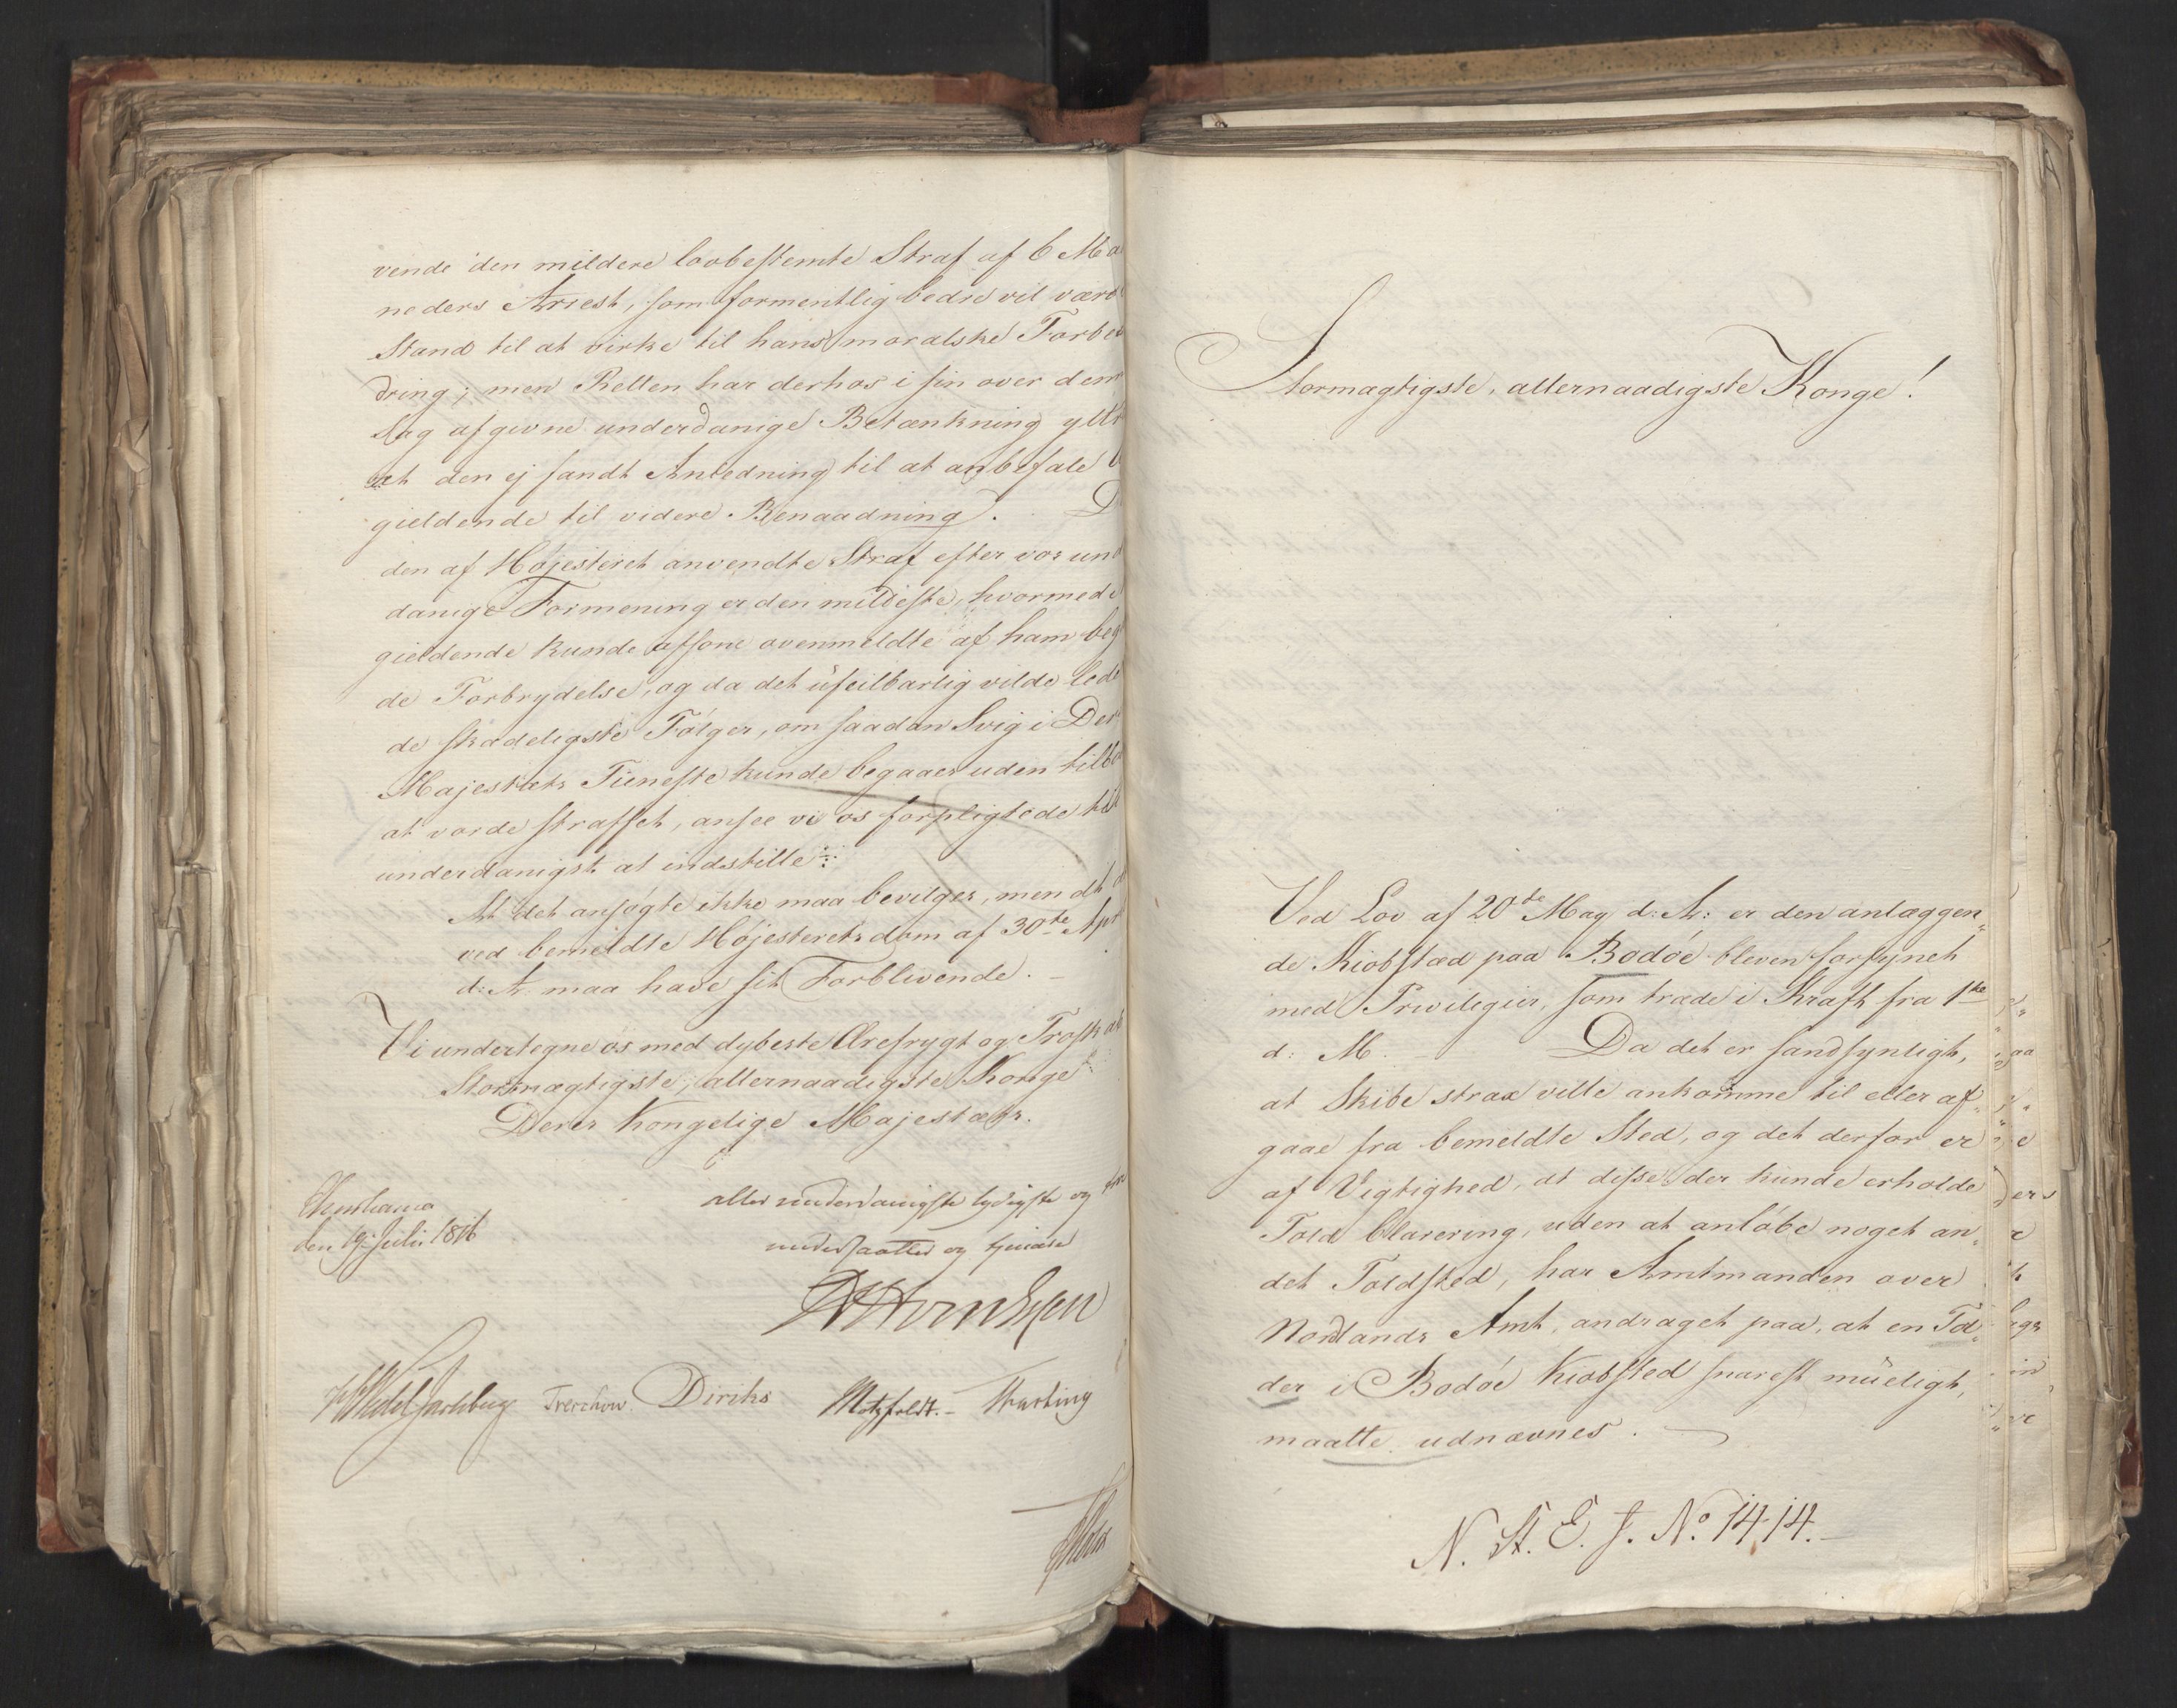 vende den mildere lovbestemte Straf af 6 Ma
neders Arrest, som formentlig bedre vil være
Stand til at virke til hans moralske Forbe
dring; men Retten har derhos i sin over denn
Sag afgivne underdanige Betænkning yttr
at den ej fandt Anledning til at anbefale
gieldende til videre Benaadning. D
den af Højesteret anvendte Straf efter vor und
danige Formening er den mildeste, hvormed
gieldende kunde afsone ovenmeldte af ham beg
de Forbrydelse, og da det ufeilbarlig vilde lede
de skadeligste Følger, om saadan Svig i Der
Majestæts Tieneste kunde begaaes uden tilbø
at vorde straffet, ansee vi os forpligtede til
underdanigst at indstille:
At det ansøgte ikke maa bevilges, men at d
ved bemeldte Højesterets dom af 30te Apr
d: A: maa have sit Forblivende. —
Vi undertegne os med dybeste Ærefrygt og Troskab
Stormægtigste, allernaadigste Konge
Deres Kongelige Majestæts.
Christiania
den 19 Juli 1816
aller underdanigste lydigste og tro
undersaatter og tjenere
Wedel Jarlsberg Treschow Diriks Motzfeldt. Krebting
Stormægtigste, allernaadigste Konge!
Ved Lov af 20de May d: A: er den anlæggen
de Kiøbstæd paa Bodøe bleven forsynet
med Privilegier, som træde i Kraft fra 1te
d: M. — Da det er sandsynligt,
at Skibe strax ville ankomme til eller af
gaae fra bemeldte Sted, og det derfor er
af Vigtighed, at disse der kunde erholde
Told Clarering, uden at anløbe noget an
det Toldsted, har Amtmanden over
Nordlands Amt, andraget paa, at en Tol
der i Bodøe Kiøbsted snarest müeligt,
maatte udnævnes. —
N. St. E. J. No. 1414. —